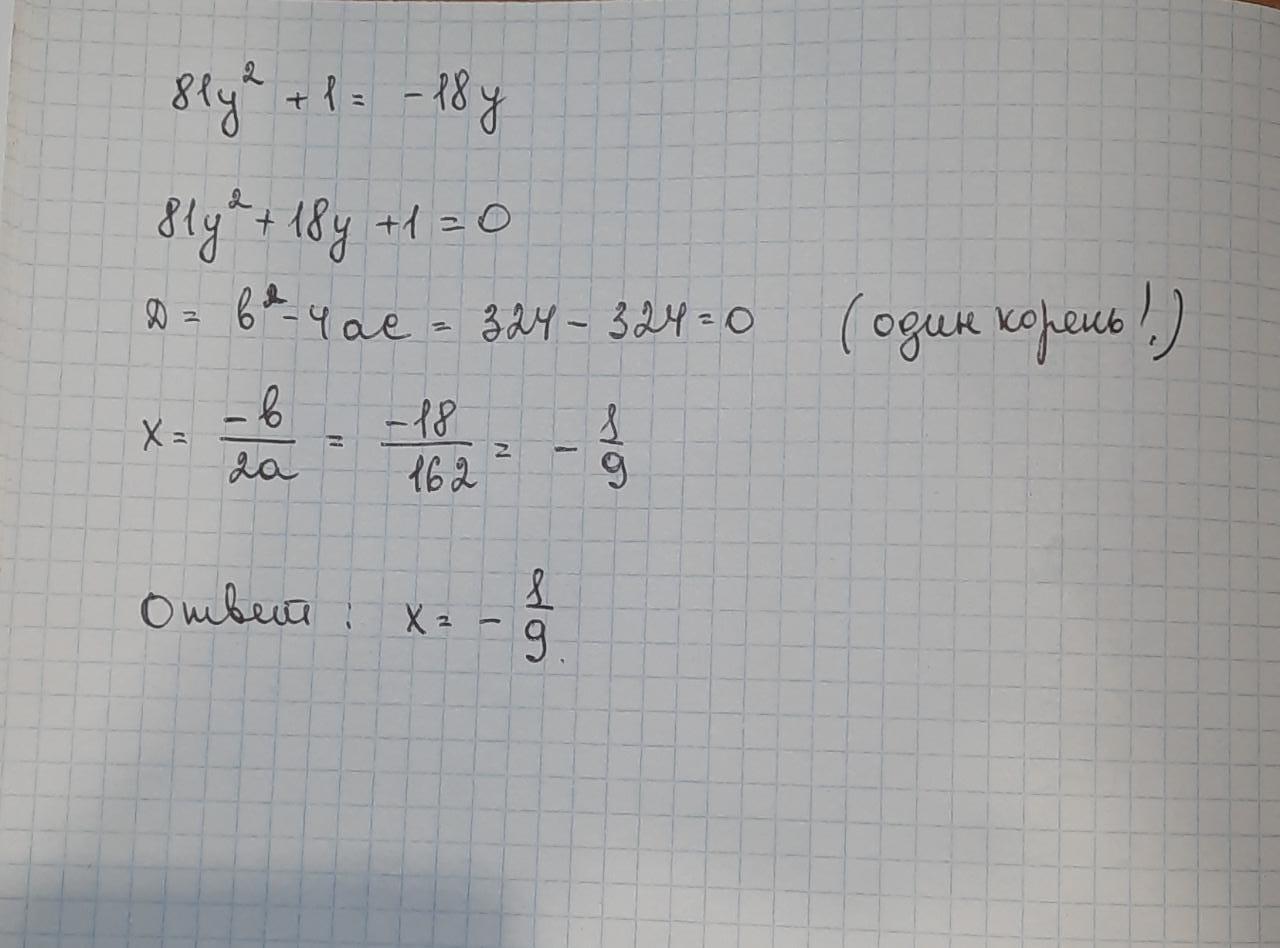 81y² + 1 = -18y
81y² + 18y + 1 = 0
D = b² - 4ac = 324 - 324 = 0 (один корень!)
x = -b/2a = -18/162 = -1/9
Ответ: x = -1/9.